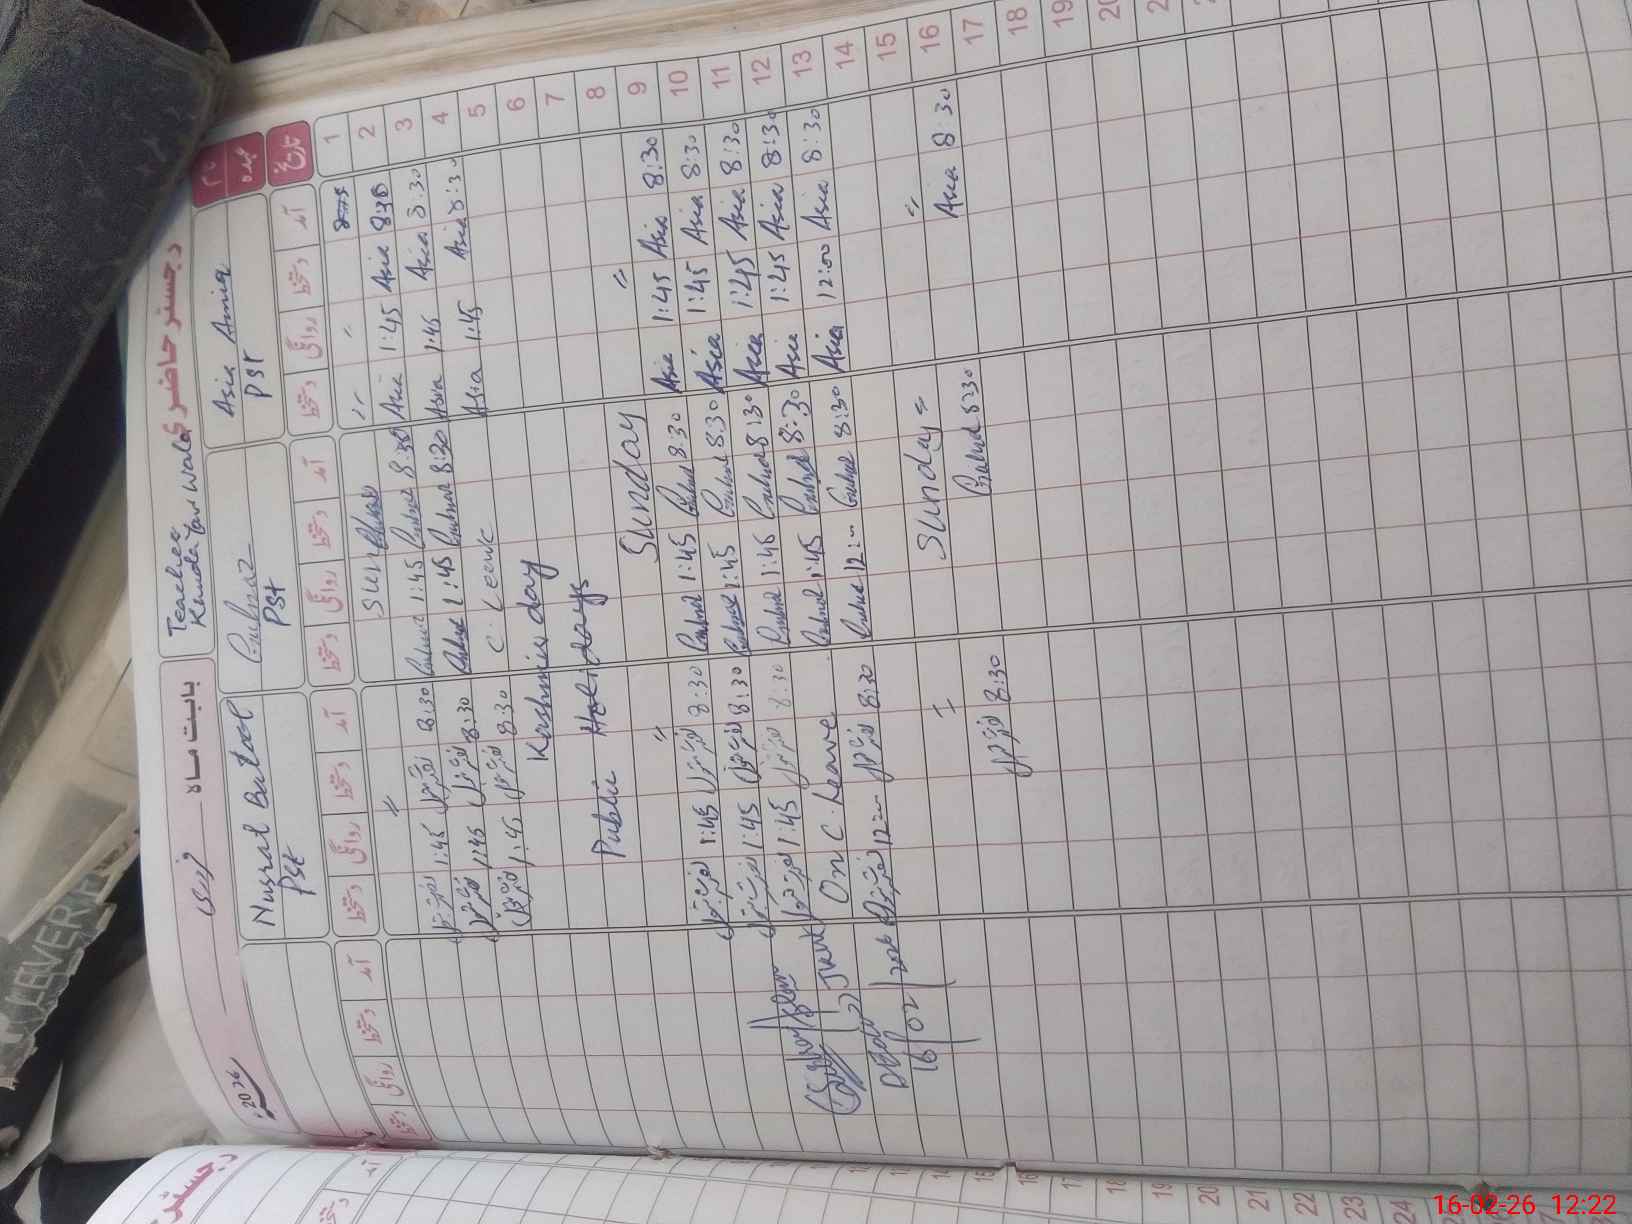 رجسٹر حاضری
Teacher
Khuda Yar Wala
بابت ماہ فروری 2026
نام
عہدہ
Asia Amir
PST
Gulnaz
PST
Nusrat Batool
PST
تاریخ آمد دستخط روانگی دستخط آمد دستخط روانگی دستخط آمد دستخط روانگی دستخط آمد دستخط روانگی دستخط
1 〃 〃 Sun 〃
2 Asia 830 1:45 Asia 8:30 1:45 8:30 نصرت بتول 1:45 نصرت بتول
3 Asia 8:30 1:45 Asia 8:30 1:45 8:30 نصرت بتول 1:45 نصرت بتول
4 Asia 8:30 1:45 Asia C. Leave 8:30 نصرت بتول 1:45 نصرت بتول
5 Kashmir day
6 Public Holidays
7
8 〃 Sunday 〃
9 8:30 Asia 1:45 Asia 8:30 1:45 8:30 نصرت بتول 1:45 نصرت بتول
10 8:30 Asia 1:45 Asia 8:30 1:45 8:30 نصرت بتول 1:45 نصرت بتول
11 8:30 Asia 1:45 Asia 8:30 1:45 8:30 نصرت بتول 1:45 نصرت بتول
12 8:30 Asia 1:45 Asia 8:30 1:45 On C. Leave
13 8:30 Asia 12:00 Asia 8:30 12:- 8:30 نصرت بتول 12:- نصرت بتول
14
15 〃 Sunday = 〃
16 8:30 Asia 8:30 8:30 نصرت بتول
17
18
19
20
16/02/2026
رجسٹر
آمد
دستخط
12
13
14
15
16
17
18
19
20
21
22
23
24
LEVER
16-02-26 12:22